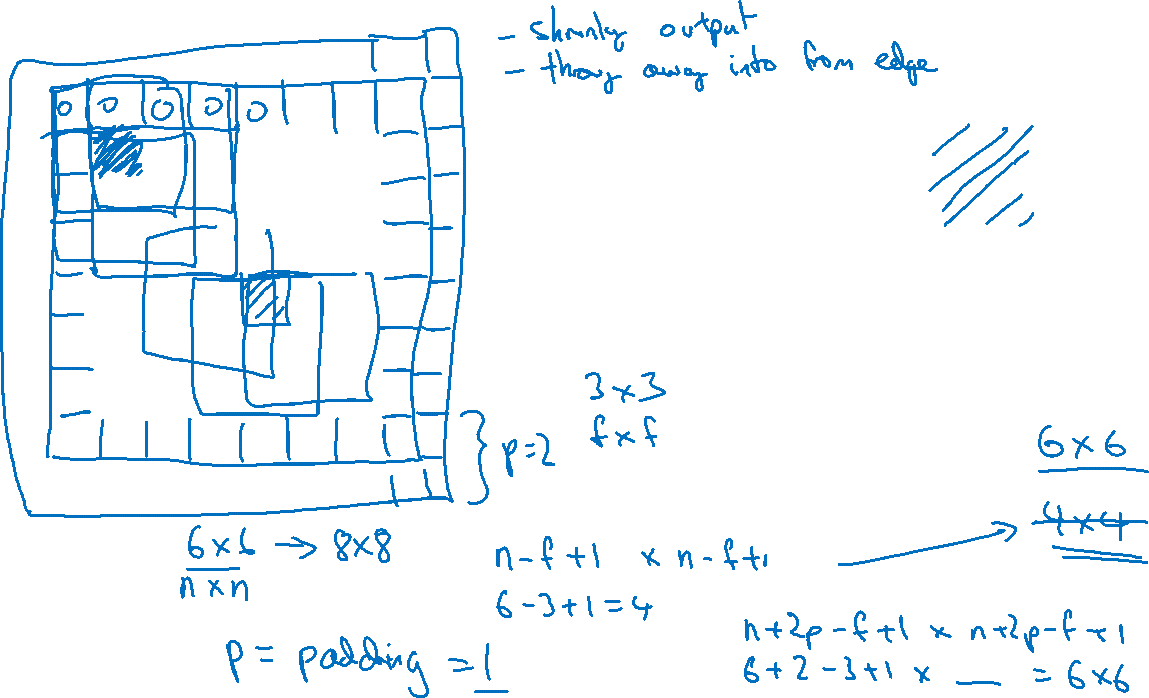 - shrinky output
- throw away info from edge
0 0 0 0 0
3 x 3
f x f
p=2
6 x 6
4 x 4
6 x 6 → 8x8
n x n
n-f+1 x n-f+1
6-3+1=4
p = padding = 1
n+2p-f+1 x n+2p-f+1
6+2-3+1 x __ = 6x6